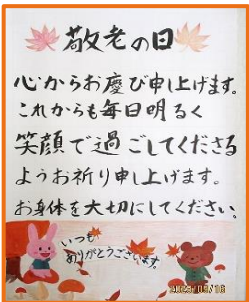 敬老の日
心からお慶び申し上げます。
これからも毎日明るく
笑顔で過ごしてくださる
ようお祈り申し上げます。
お身体を大切にしてください。
いつも
ありがとうございます。
2023/09/16